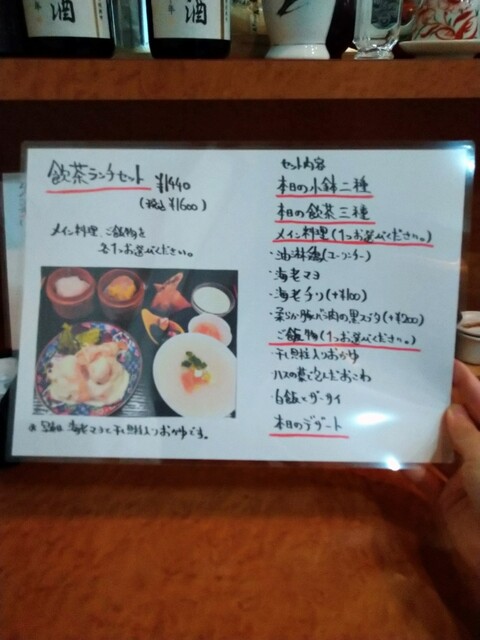 酒
酒
飲茶ランチセット ¥1440
(税込 ¥1600)
メイン料理、ご飯物を
各1つお選びください。
セット内容
本日の小鉢二種
本日の飲茶三種
メイン料理(1つお選びください。)
・油淋鶏(ユーリンチー)
・海老マヨ
・海老チリ(+¥100)
・柔らか豚バラ肉の黒スブタ(+¥200)
ご飯物(1つお選びください。)
・干し貝柱入りおかゆ
・ハスの葉で包んだおこわ
・白飯とザーサイ
本日のデザート
海老マヨと干し貝柱入りおかゆです。